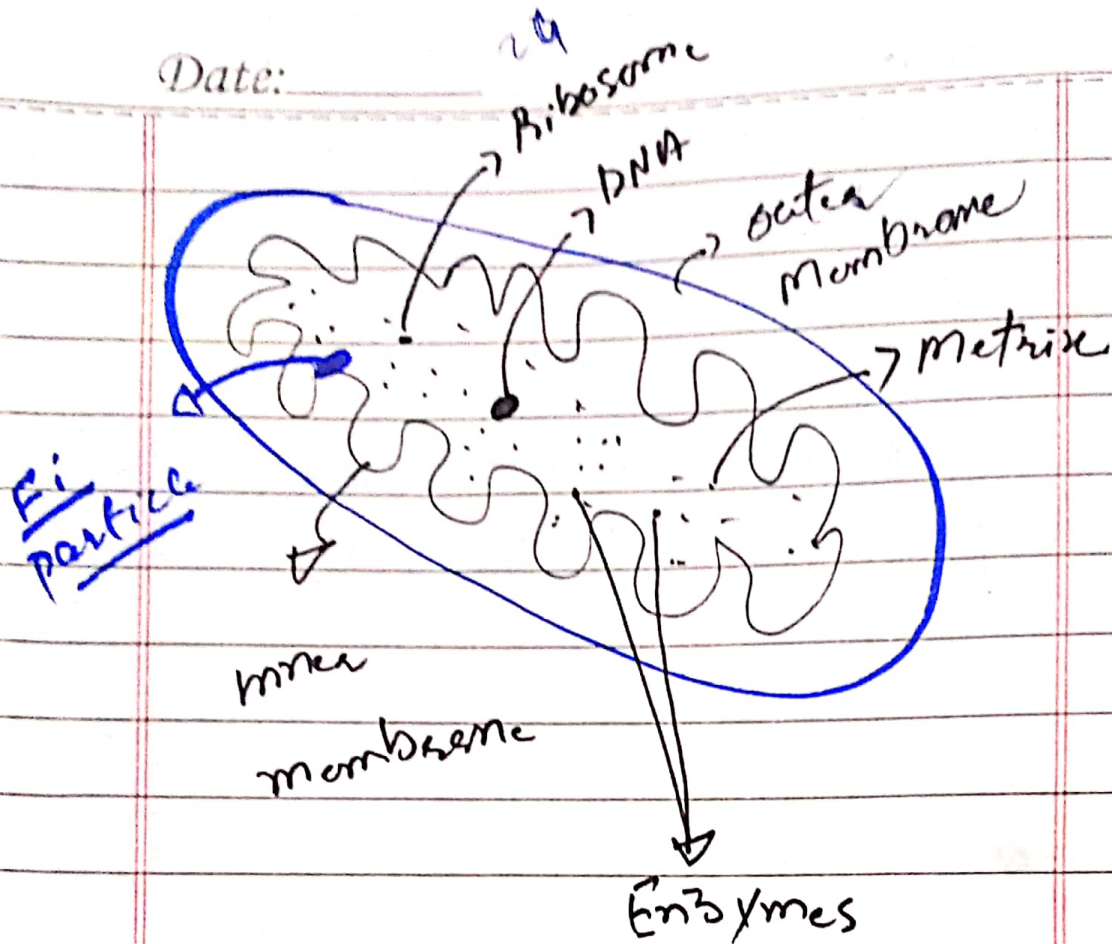 Date:
24
Ribosome
DNA
outer
membrane
Metrix
Fi
particle
inner
membrane
Enzymes